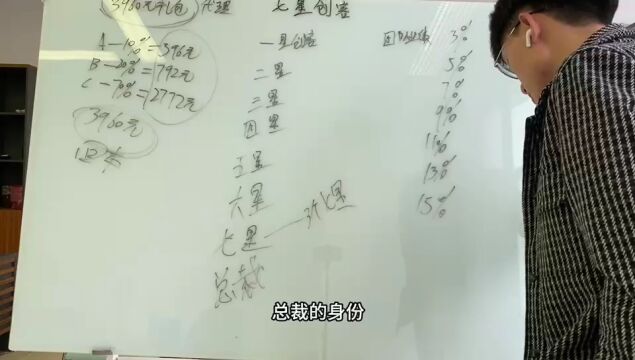 3960元礼包 代理 七星创客
A-10%=396元 一星创客 团队业绩 3%
B-20%=792元 二星 5%
C-70%=2772元 三星 7%
3960元 四星 9%
五星 11%
六星 13%
七星 15%
总裁
总裁的身份